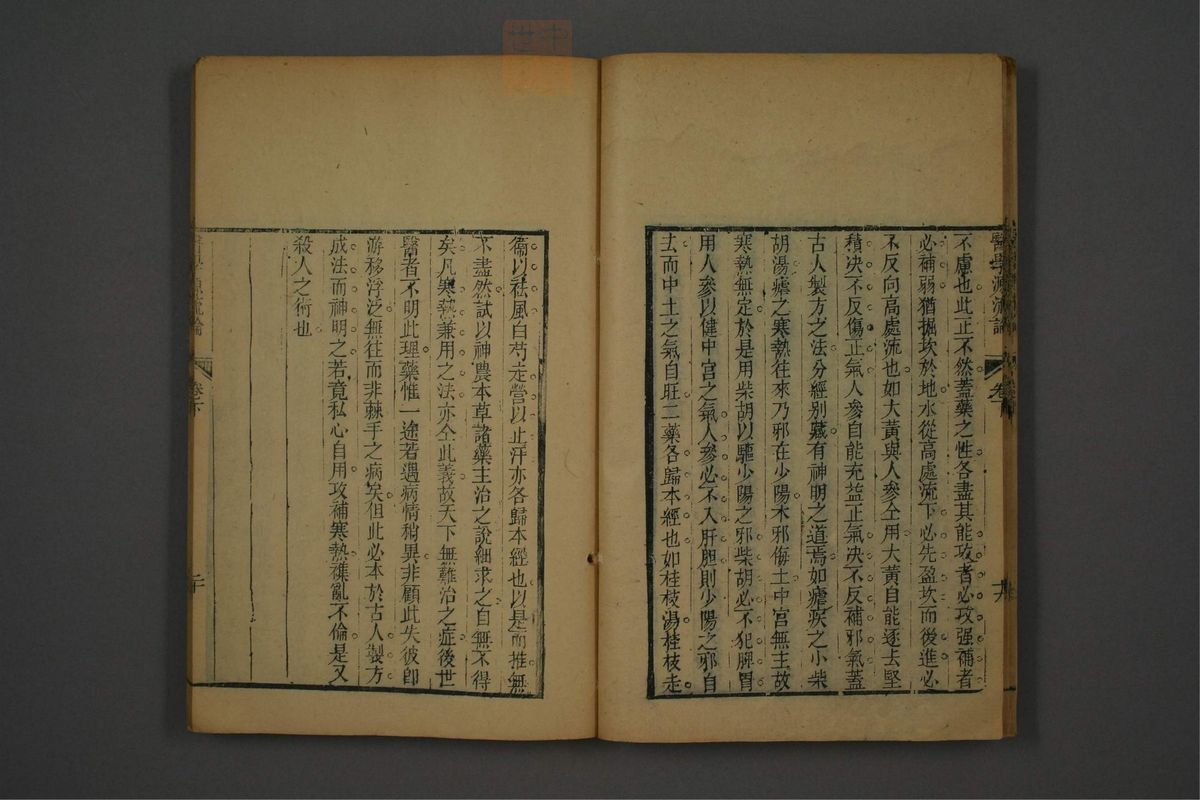 醫學源流論
卷
不慮也此正不然蓋藥之性各盡其能攻者必攻强補者
必補弱猶掘坎於地水從高處流下必先盈坎而後進必
不反向高處流也如大黃與人參仝用大黃自能逐去堅
積决不反傷正氣人參自能充益正氣决不反補邪氣蓋
古人製方之法分經别藏有神明之道焉如瘧疾之小柴
胡湯瘧之寒熱往來乃邪在少陽木邪侮土中宮無主故
寒熱無定於是用柴胡以驅少陽之邪柴胡必不犯脾胃
用人參以健中宮之氣人參必不入肝胆則少陽之邪自
去而中土之氣自旺二藥各歸本經也如桂枝湯桂枝走
衞以祛風白芍走營以止汗亦各歸本經也以是而推無
不盡然試以神農本草諸藥主治之說細求之自無不得
矣凡寒熱兼用之法亦仝此義故天下無難治之症後世
醫者不明此理藥惟一途若遇病情稍異非顧此失彼卽
游移浮泛無往而非棘手之病矣但此必本於古人製方
成法而神明之若竟私心自用攻補寒熱襍亂不倫是又
殺人之術也
卷下